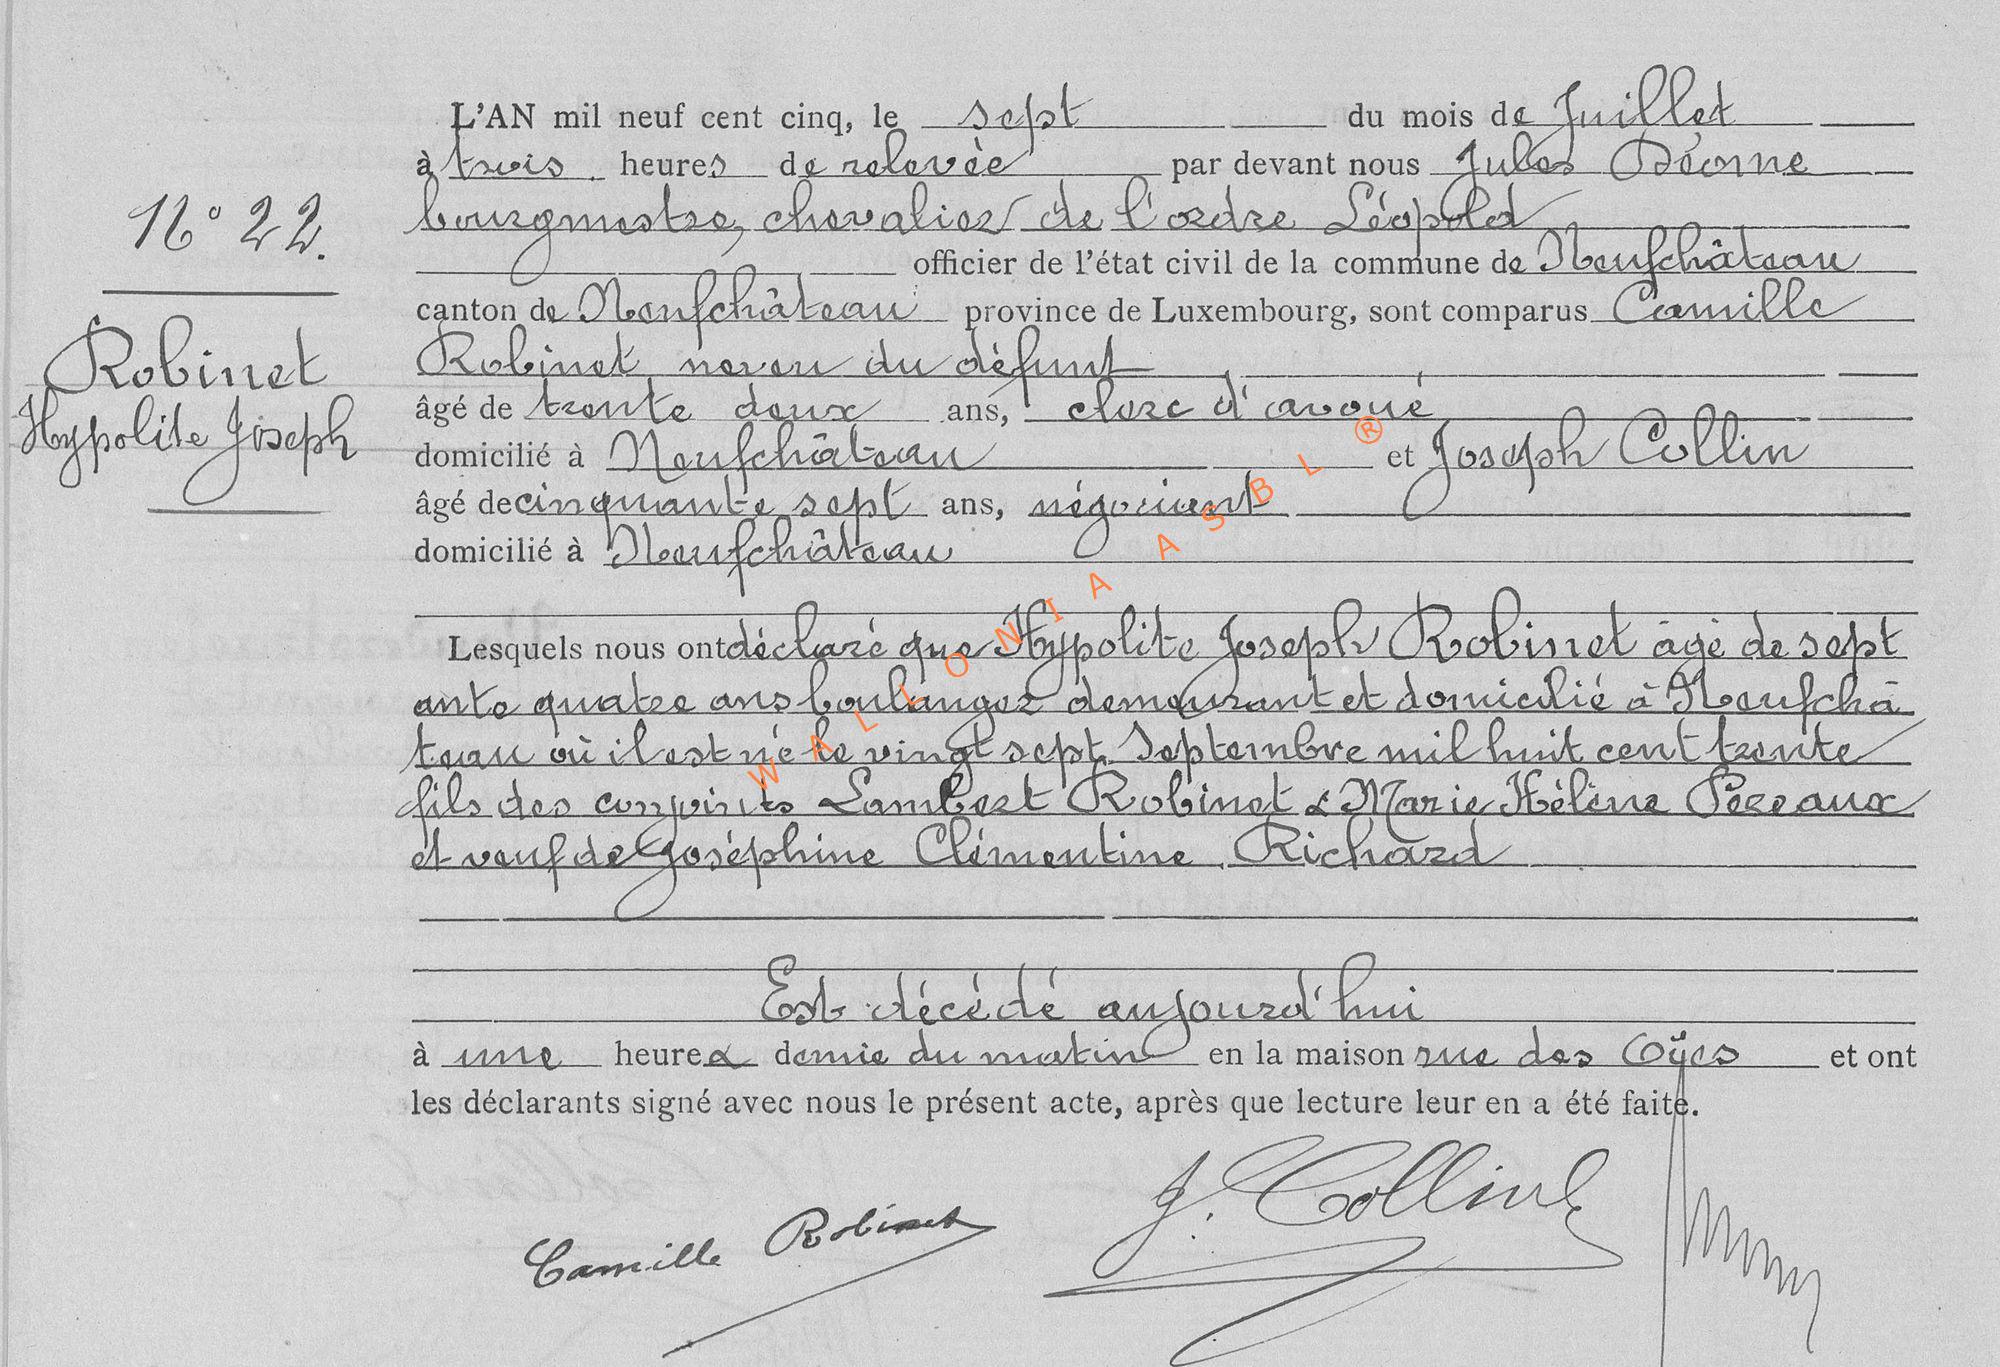 N° 22.
Robinet
Hypolite Joseph
L'AN mil neuf cent cinq, le sept du mois de Juillet
à trois heures de relevée par devant nous Jules
bourgmestre, chevalier de l'ordre Léopold
officier de l'état civil de la commune de Neufchâteau
canton de Neufchâteau province de Luxembourg, sont comparus Camille
Robinet neveu du défunt
âgé de trente deux ans, clerc d'avoué
domicilié à Neufchâteau et Joseph Collin
âgé de cinquante sept ans, négociant
domicilié à Neufchâteau
Lesquels nous ont déclaré que Hypolite Joseph Robinet âgé de sept
ante quatre ans boulanger demeurant et domicilié à Neufchâ
teau où il est né le vingt sept Septembre mil huit cent trente
fils des conjoints Lambert Robinet & Marie Hélène Pereaux
et veuf de Joséphine Clémentine Richard
Est décédé aujourd'hui
à une heure & demie du matin en la maison rue des Oÿes et ont
les déclarants signé avec nous le présent acte, après que lecture leur en a été faite.
Camille Robinet
J. Collin
WALLONIA ASBL ®